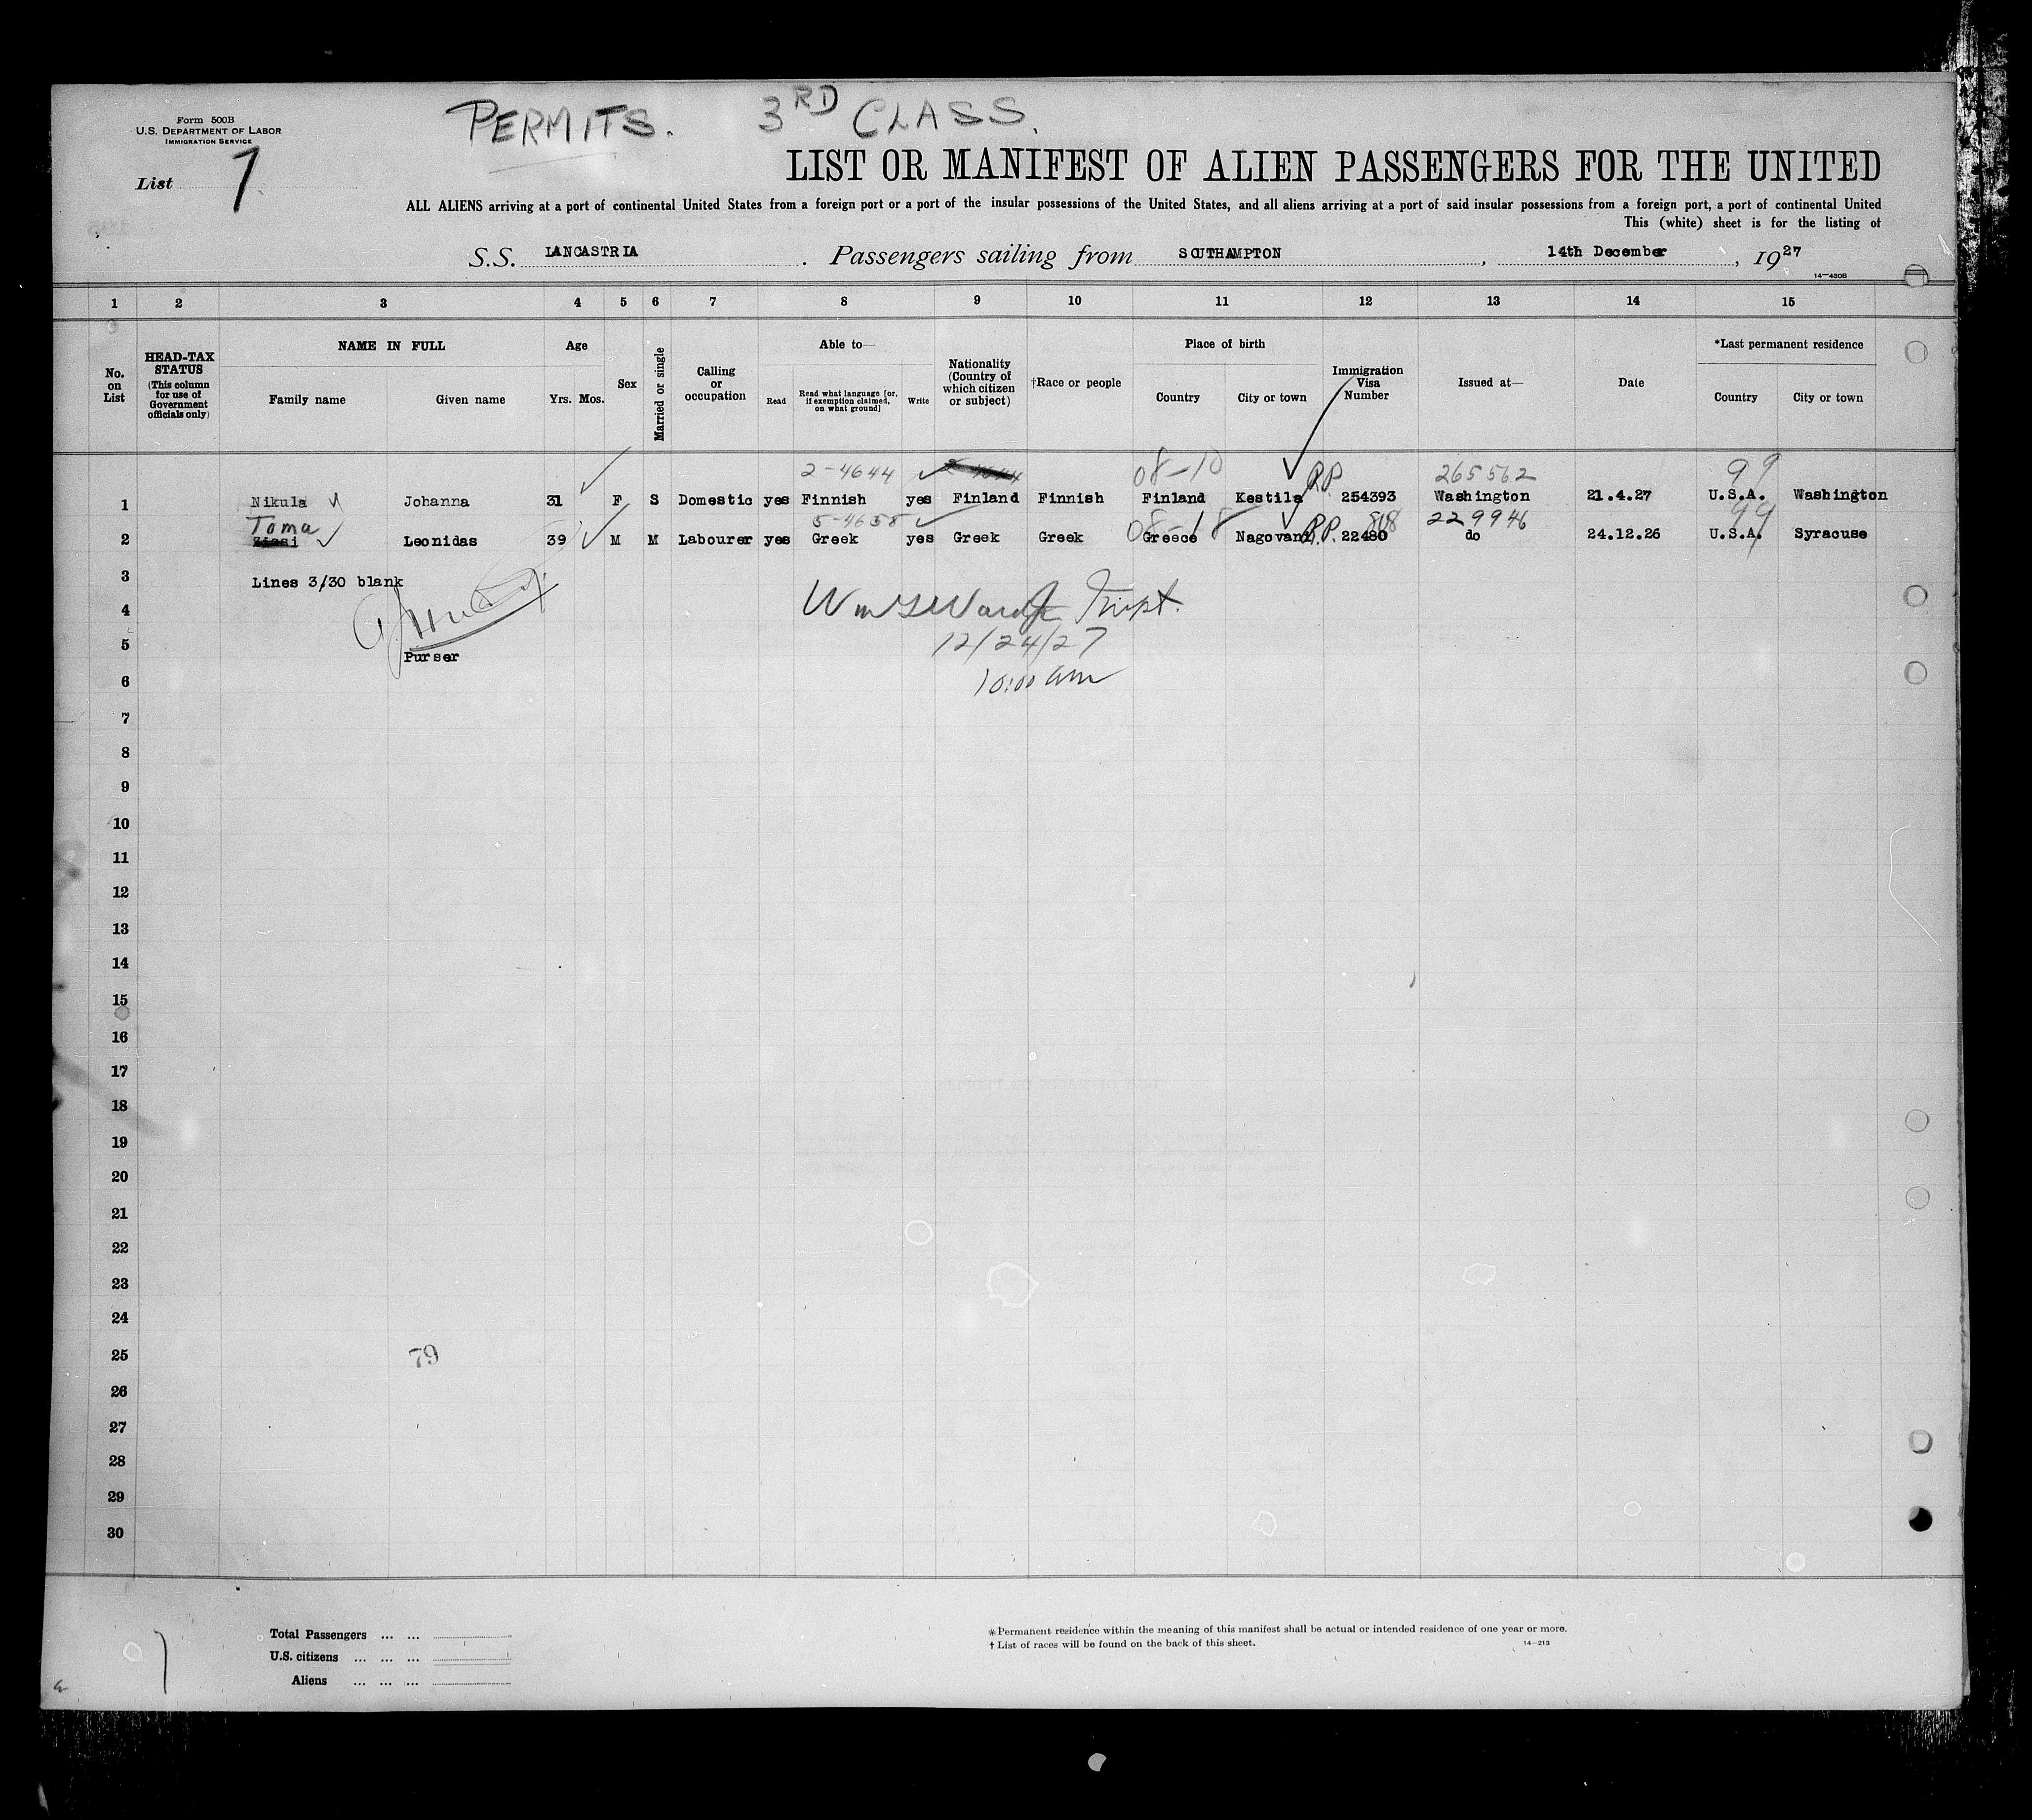 Form 500B
U.S. DEPARTMENT OF LABOR
IMMIGRATION SERVICE
PERMITS. 3RD CLASS.
List 7
LIST OR MANIFEST OF ALIEN PASSENGERS FOR THE UNITED
ALL ALIENS arriving at a port of continental United States from a foreign port or a port of the insular possessions of the United States, and all aliens arriving at a port of said insular possessions from a foreign port, a port of continental United
This (white) sheet is for the listing of
S.S. LANCASTRIA. Passengers sailing from SOUTHAMPTON, 14th December, 1927
14—430B
1 2 3 4 5 6 7 8 9 10 11 12 13 14 15
No. on List
HEAD-TAX STATUS (This column for use of Government officials only)
NAME IN FULL
Family name Given name
Age
Yrs. Mos.
Sex
Married or single
Calling or occupation
Able to—
Read Read what language [or, if exemption claimed, on what ground] Write
Nationality (Country of which citizen or subject)
†Race or people
Place of birth
Country City or town
Immigration Visa Number
Issued at—
Date
*Last permanent residence
Country City or town
2-4644 08-10 RP 265562 99
1 Nikula Johanna 31 F S Domestic yes Finnish yes Finland Finnish Finland Kestila 254393 Washington 21.4.27 U.S.A. Washington
Toma 5-4658 08-18 R.P. 229946 99
2 Leonidas 39 M M Labourer yes Greek yes Greek Greek Greece 22480 do 24.12.26 U.S.A. Syracuse
3 Lines 3/30 blank
4
5 Purser 12/24/27
6 10:00 am
7
8
9
10
11
12
13
14
15
16
17
18
19
20
21
22
23
24
25 79
26
27
28
29
30
Total Passengers ... ...
U.S. citizens ... ... ...
Aliens ... ... ...
*Permanent residence within the meaning of this manifest shall be actual or intended residence of one year or more.
† List of races will be found on the back of this sheet. 14—213